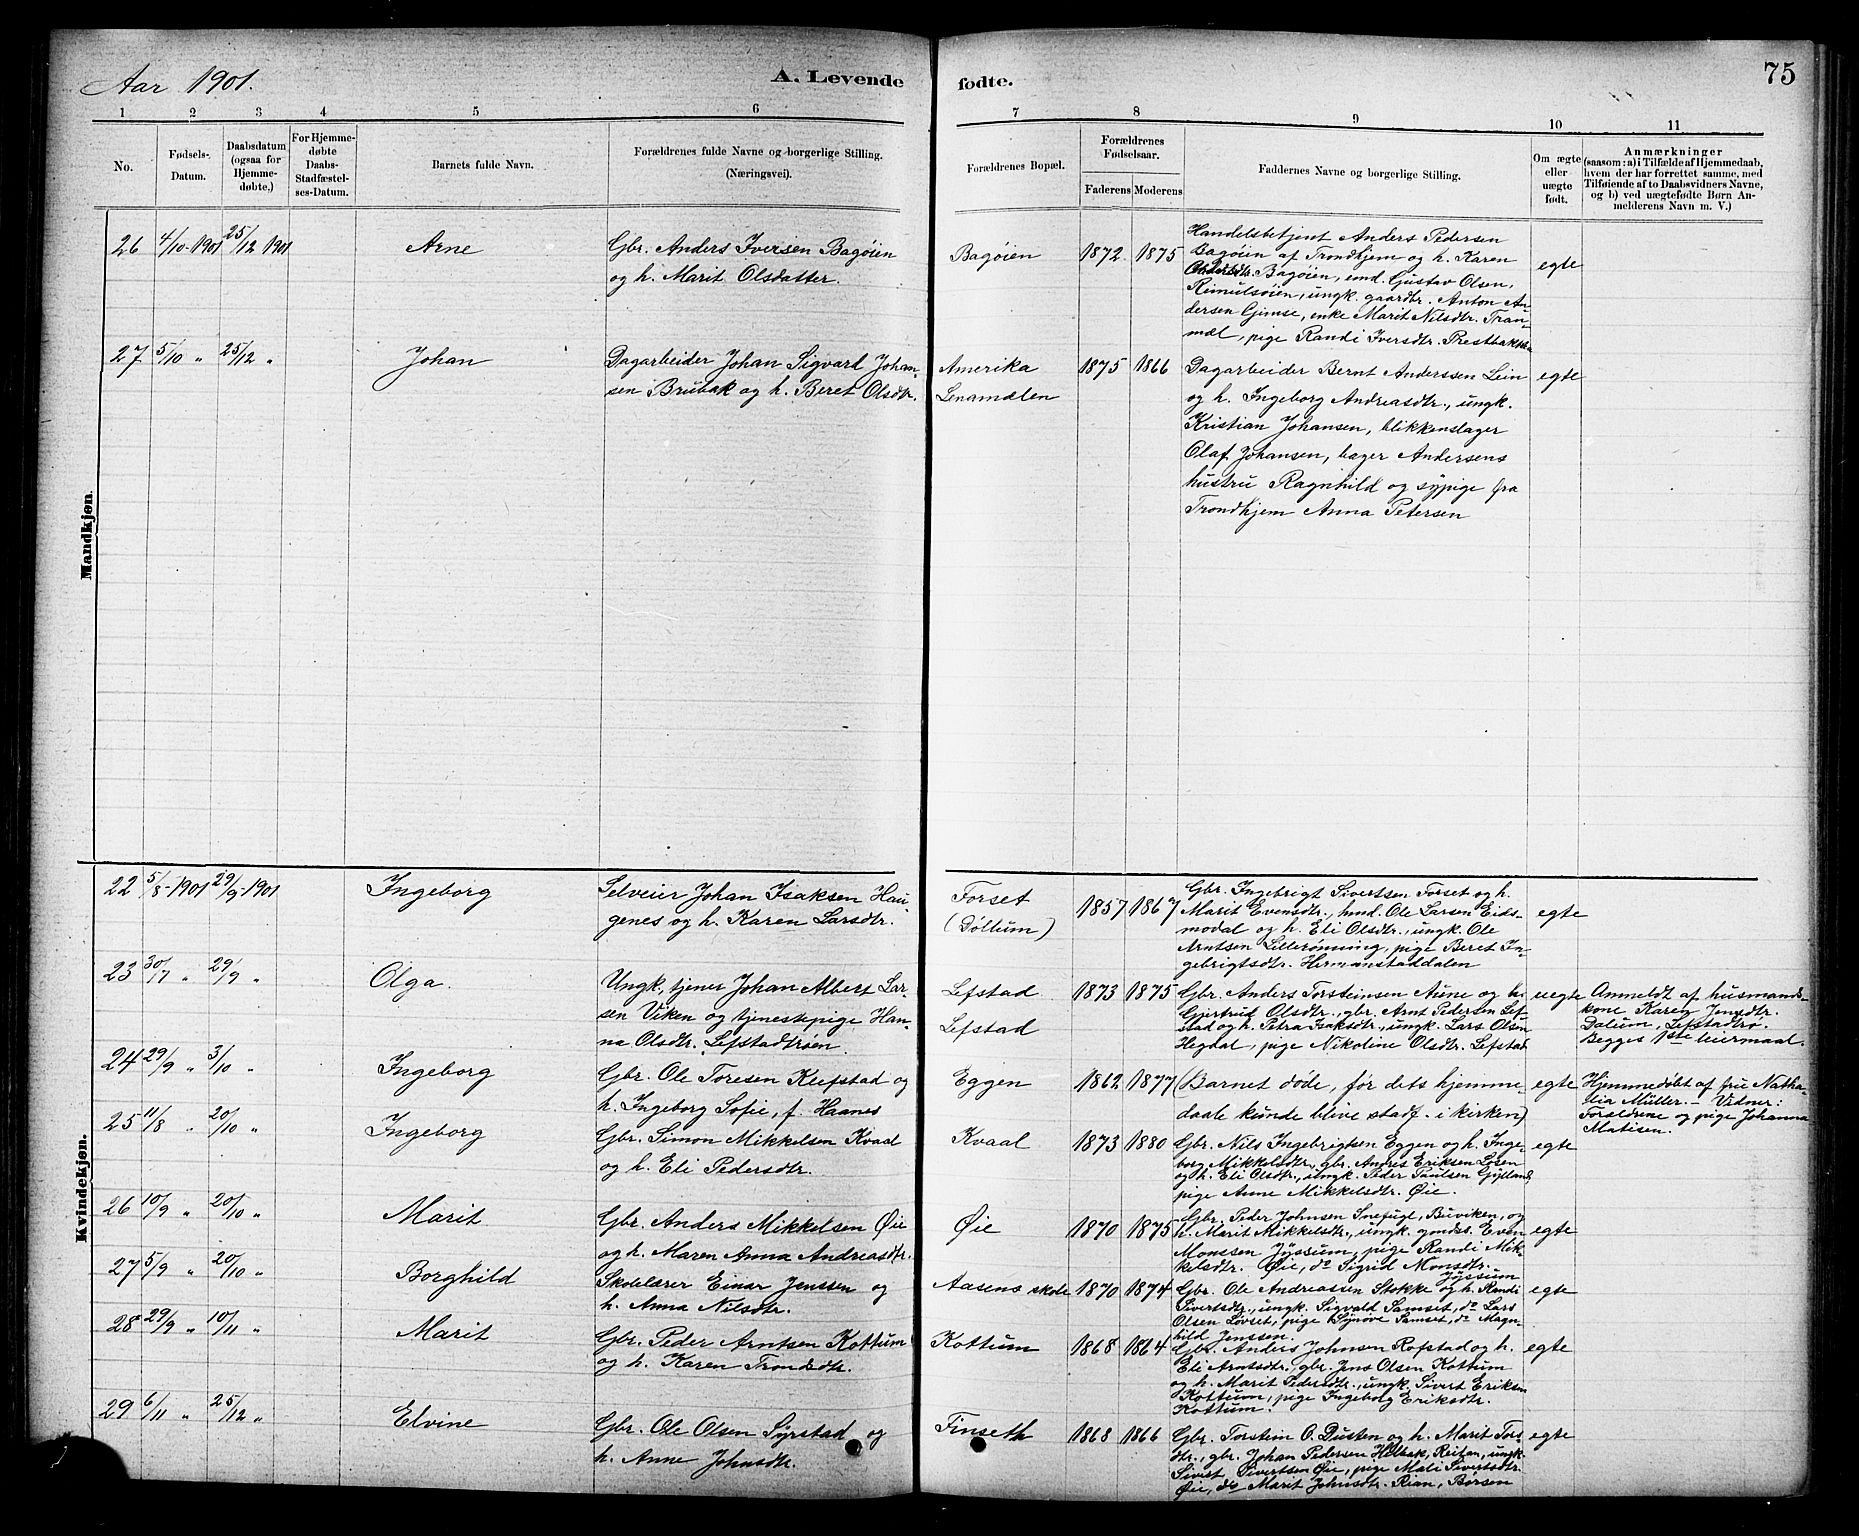 Aar 1901.
A. Levende
fødte.
75
1 2 3 4 5 6 7 8 9 10 11
No.
Fødsels-
Datum.
Daabsdatum
(ogsaa for
Hjemme-
døbte,)
For Hjemme-
døbte
Daabs-
Stadfæstel-
ses-Datum.
Barnets fulde Navn.
Forældrenes fulde Navne og borgerlige Stilling.
(Næringsvei).
Forældrenes Bopæl.
Forældrenes
Fødselsaar.
Faderens Moderens
Faddernes Navne og borgerlige Stilling.
Om ægte
eller
uægte
født.
Anmærkninger
(saasom: a) i Tilfælde af Hjemmedaab,
hvem der har forrettet samme, med
Tilføiende af to Daabsvidners Navne,
og b) ved uægtefødte Børn An-
melderens Navn m. V.)
Mandkjøn.
26 4/10-1901 25/12 1901
Arne
Gbr. Anders Iversen Bagøien
og h. Marit Olsdatter.
Bagøien
1872. 1875
Handelsbetjent Anders Pedersen
Bagøien af Trondhjem og h. Karen
Bagøien, emd. Gustav Olsen,
Reimulsøien, ungk. gaardbr. Anton An-
dersen Gimse, enke Marit Nilsdtr. Tran-
mæl, pige Randi Iversdtr. Prestbak
egte
27 5/10 „ 25/12 „
Johan
Dagarbeider Johan Sigvard Johan-
sen Brubak og h. Beret Olsdtr.
Amerika
Lenamælen
1875 1866
Dagarbeider Bernt Anderssen Lein
og h. Ingeborg Andreasdtr., ungk.
Kristian Johansen, blikkenslager
Olaf Johansen, bager Andersens
hustru Ragnhild og sypige fra
Trondhjem Anna Petersen
egte
Kvindekjøn.
22 5/8-1901 29/9-1901
Ingeborg
Selveier Johan Isaksen Hau-
genes og h. Karen Larsdtr.
Forset
(Døltum)
1857 1867
Gbr. Ingebrigt Sivertsen Forset og h.
Marit Evensdtr., hmd. Ole Larsen Eids-
modal og h. Eli Olsdtr., ungk. Ole
Arntsen Lillerønning, pige Beret In-
gebrigtsdtr. Hermanstaddalen
egte
23 30/7 „ 29/9 „
Olga
Ungk., tjener Johan Albert Lar-
sen Viken og tjenestepige Han-
na Olsdtr. Lefstadtrøen.
Lefstad
Lefstad
1873 1875
Gbr. Anders Torsteinsen Aune og h.
Gjertrud Olsdtr., gbr. Arnt Pedersen Lef-
stad og h. Petra Isaksdtr., ungk. Lars Olsen
Hegdal, pige Nikoline Olsdtr. Lefstad
uegte
Anmeldt af husmands-
kone Karen Jensdtr.
Dalum, Lefstadtrø.
Begges 1ste leiermaal.
24 29/9 „ 3/10 „
Ingeborg
Gbr. Ole Toresen Klefstad og
h. Ingeborg Sofie, f. Haanes
Eggen
1862 1877
(Barnet døde, før dets hjemme-
daab kunde blive stadf. i kirken)
egte
Hjemmedøbt af fru Natha-
lia Müller. – Vidner:
Forældrene og pige Johanna
Matisen.
25 11/8 „ 20/10 „
Ingeborg
Gbr. Simon Mikkelsen Kvaal
og h. Eli Pedersdtr.
Kvaal
1873 1880
Gbr. Nils Ingebrigtsen Eggen og h. Inge-
borg Mikkelsdtr., gbr. Andres Eriksen Losen
og h. Eli Olsdtr., ungk. Peder Paulsen Gylland,
pige Anne Mikkelsdtr. Øie.
egte
26 10/9 „ 20/10 „
Marit
Gbr. Anders Mikkelsen Øie
og h. Maren Anna Andreasdtr.
Øie
1870 1875
Gbr. Peder Johnsen Snefugl, Buviken, og
h. Marit Mikkelsdtr., ungk. gmds. Even
Monssen Jyssum, pige Randi Mik-
kelsdtr. Øie, do Sigrid Monsdtr.
Jyssum
egte
27 5/9 „ 20/10 „
Borghild
Skolelærer Einar Jenssen og
h. Anna Nilsdtr.
Aasens skole
1870 1874
Gbr. Ole Andreassen Stokke og h. Randi
Sivertsdtr., ungk. Sigvald Samset, do Lars
Olsen Løvset, pige Synøve Samset, do Magn-
hild Jenssen.
egte
28 29/9 „ 10/11 „
Marit
Gbr. Peder Arntsen Kottum
og h. Karen Trondsdtr.
Kottum
1868 1864
Gbr. Anders Johnsen Rofstad og h.
Eli Arntsdtr., gbr. Jens Olsen Kottum
og h. Marit Pedersdtr., ungk. Sivert Eriksen
Kottum, pige Ingeborg Eriksdtr.
Kottum.
egte
29 6/11 „ 25/12 „
Elvine
Gbr. Ole Olsen Syrstad og
h. Anne Johnsdtr.
Finseth
1868 1866
Gbr. Torstein O. Dusten og h. Marit Tors-
dtr., gbr. Johan Pedersen Hilbak, Reitan, ungk.
Sivert Sivertsen Øie, pige Mali Sivertsdtr.
Øie, do Marit Johnsdtr. Rian, Børsen
egte